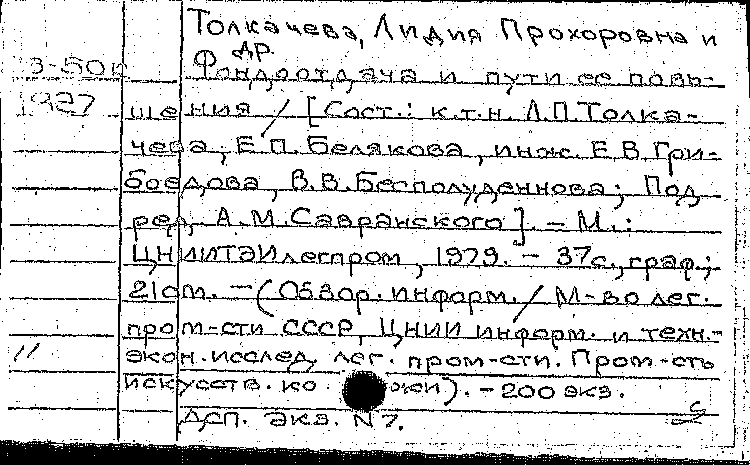 Толкачева, Лидия Прохоровна и
др.
Фондоотдача и пути ее повы-
шения / [Сост.: к.т.н. Л.П.Толка-
чева, Е.П.Белякова, инж. Е.В.Гри-
боедова, В.В.Бесполуденнова; Под
ред. А.М.Савранского]. - М.:
ЦНИИТЭИлегпром, 1979. - 37с., граф.;
21см. - (Обзор. информ. / М-во лег.
пром-сти СССР, ЦНИИ информ. и техн.-
экон. исслед. лег. пром-сти. Пром-сть
искусств. ко ожи). - 200 экз.
ДСП. Экз. N 7.